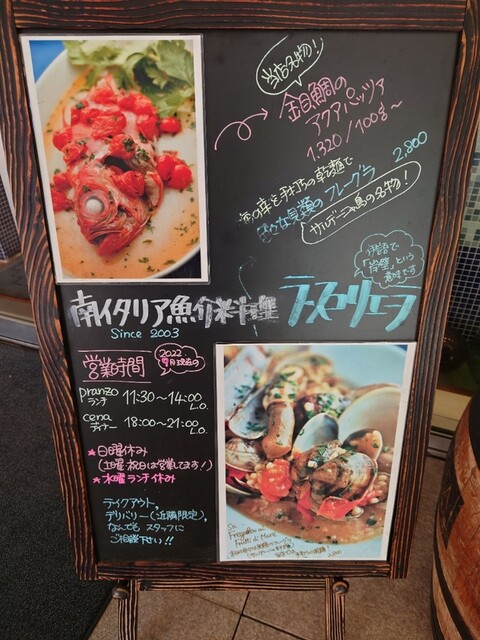 当店名物!
金目鯛の
アクアパッツァ
1,320/100g〜
海の幸と手打ちの乾麺で
フレーグラ 2,800
サルデーニャ島の名物!
伊語で
「岸壁」という
意味です
南イタリア魚介料理 ラ・スコリエーラ
Since 2003
営業時間
2022
9月現在の
pranzo
ランチ
11:30〜14:00
L.O.
cena
ディナー
18:00〜21:00
L.O.
*日曜休み
(土曜・祝日は営業てます!)
*水曜ランチ休み
テイクアウト,
デリバリー(近隣限定),
なんでも スタッフに
ご相談下さい!!
Sa
Fregula
Frutti di Mare